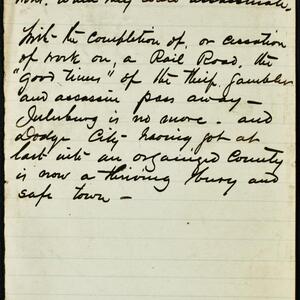 now. would they could assassinate.
With the completion of, or cessation
of work on, a Rail Road, the
"good times" of the thief, gambler
and assassin pass away –
Julesburg is no more. and
Dodge City having got at
last into an organized County
is now a thriving busy and
safe town –